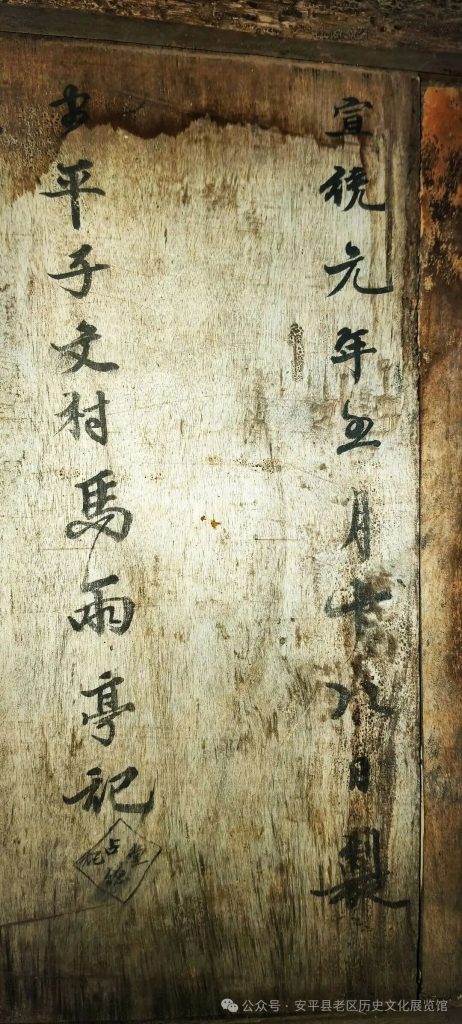 宣統元年五月十八日製
安平子文村馬雨亭記
公众号·安平县老区历史文化展览馆